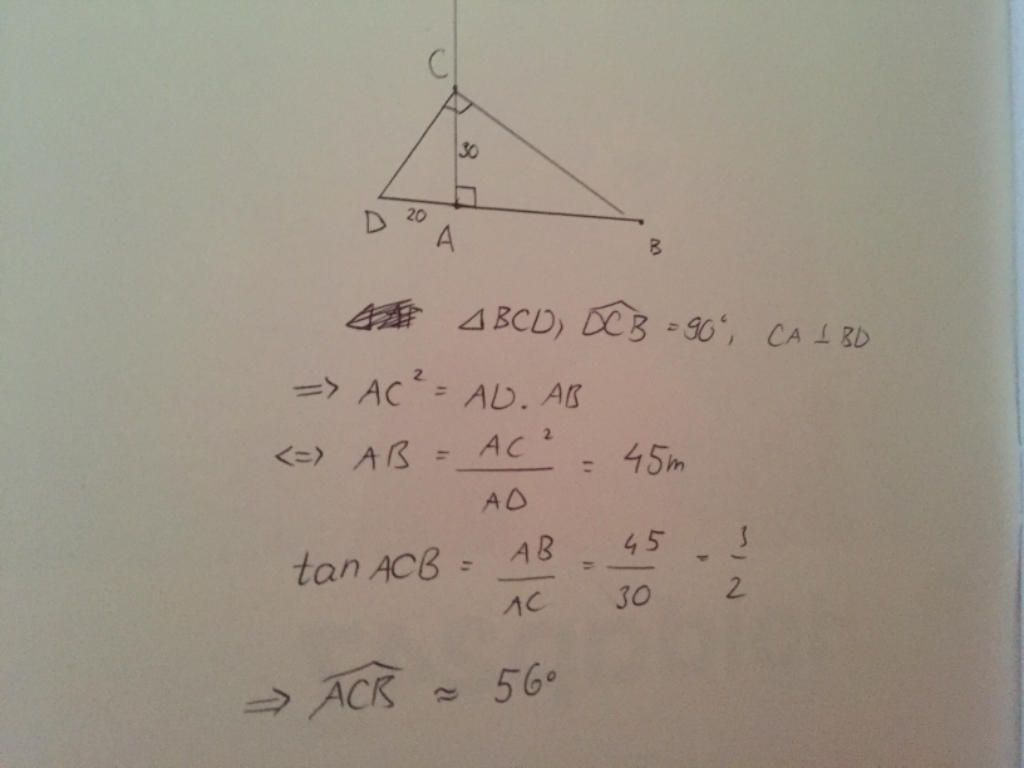 C
30
D 20
A
B
△BCD, DCB = 90°, CA ⊥ BD
=> AC² = AD. AB
<=> AB = AC² / AD = 45m
tan ACB = AB / AC = 45 / 30 = 3 / 2
=> ACB ≈ 56°